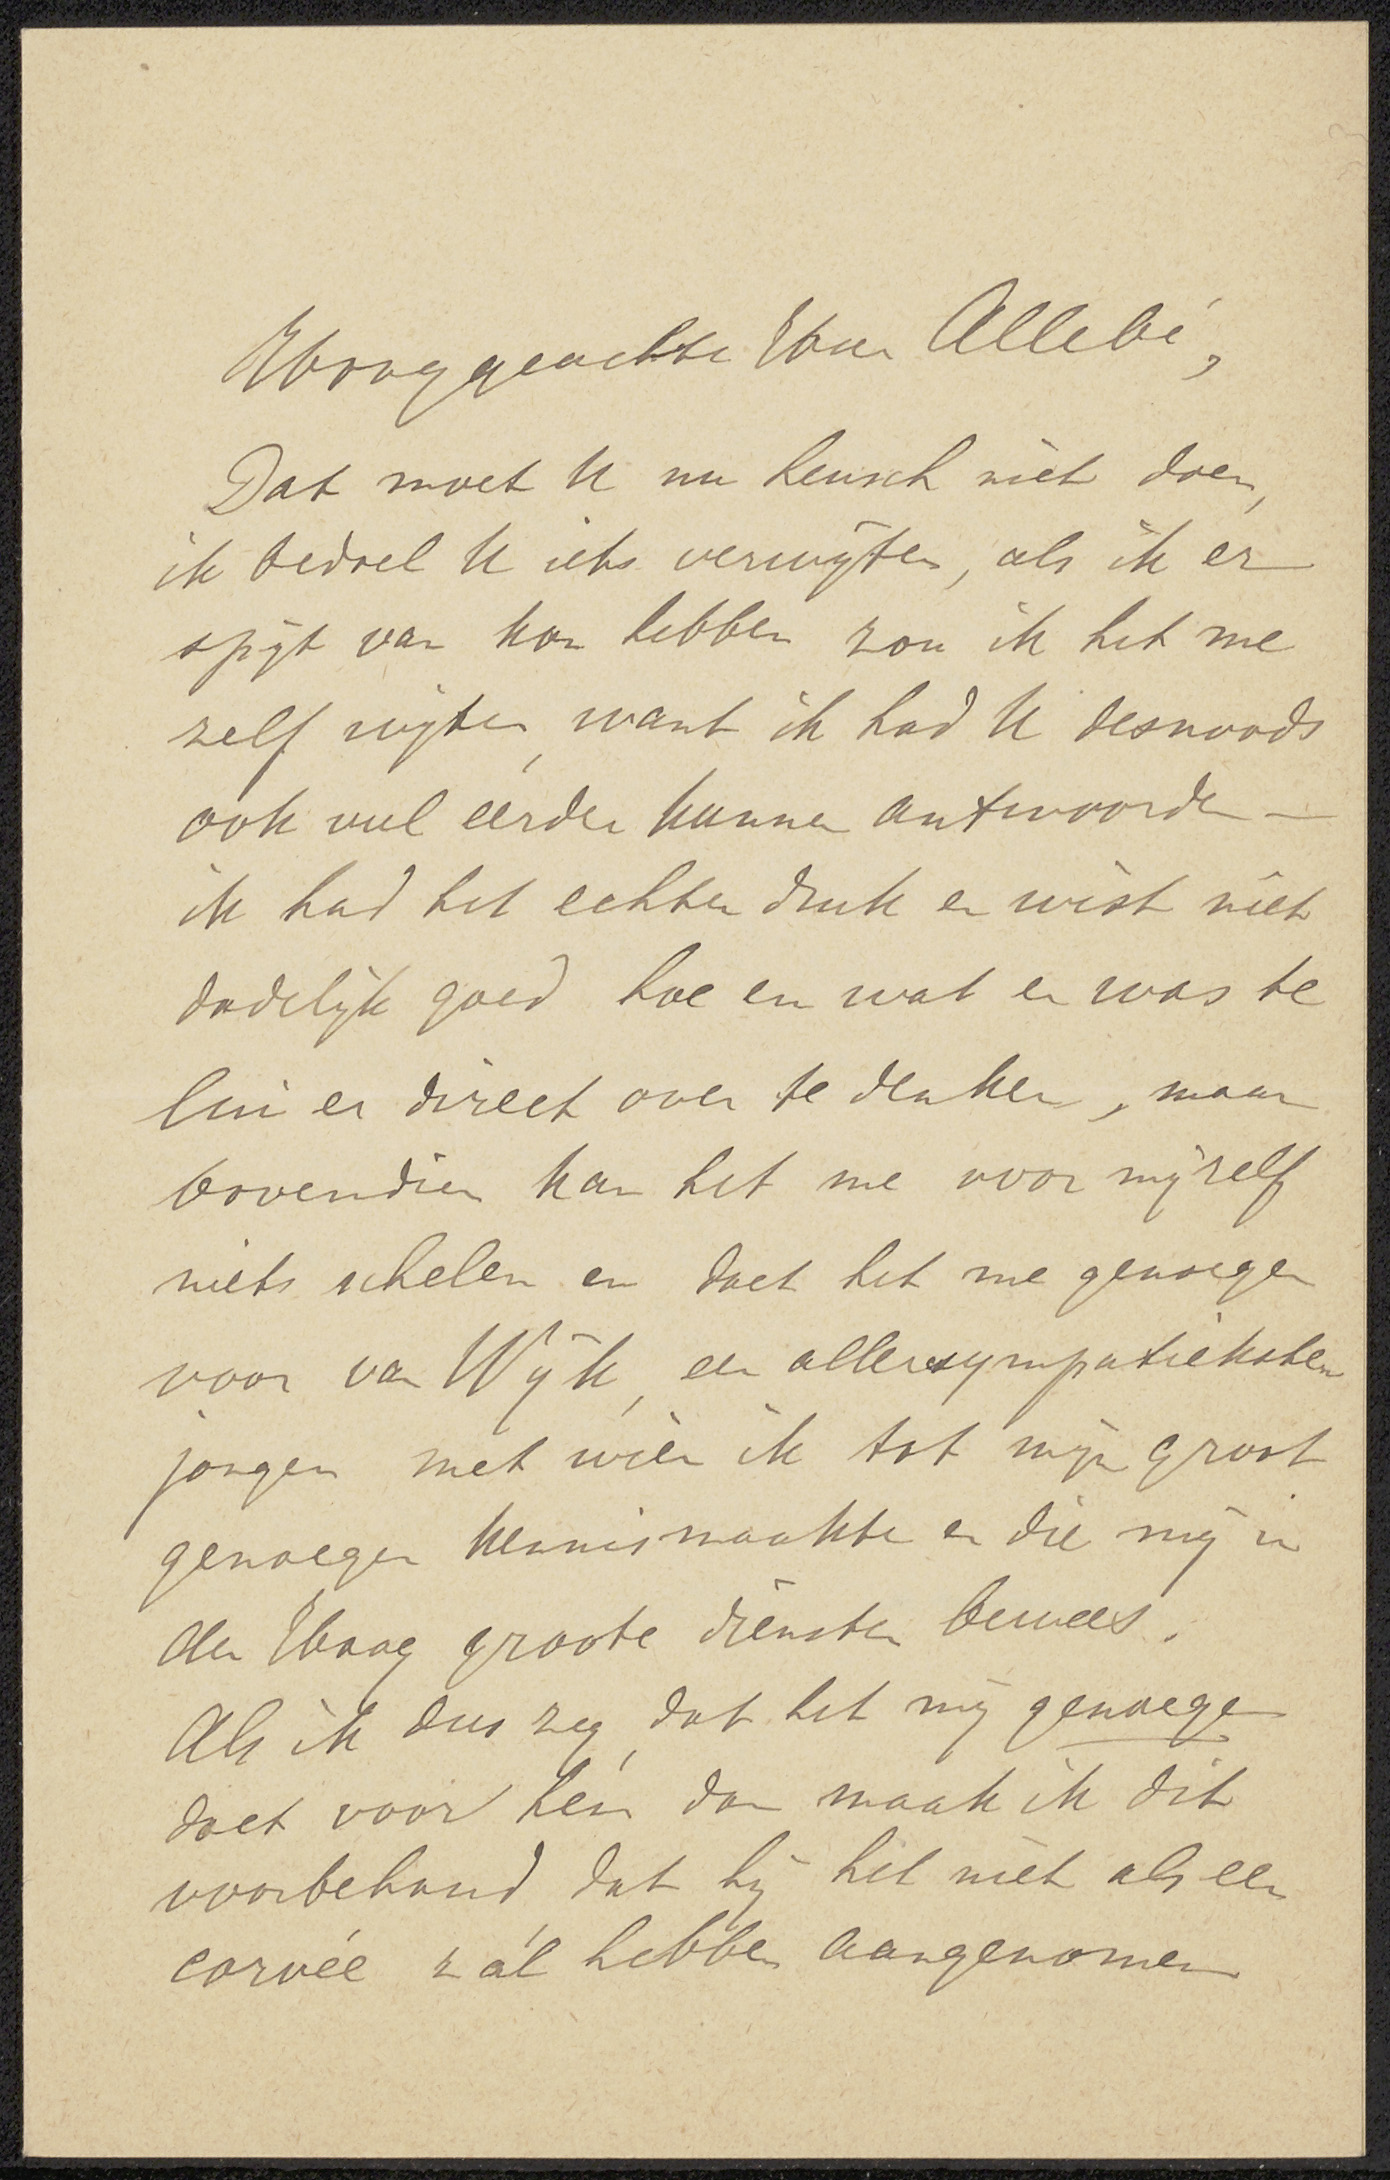 Hooggeachte Heer Allebé,
Dat moet U nu heusch niet doen,
ik bedoel U iets verwijten, als ik er
spijt van kon hebben zou ik het me
zelf wijten, want ik had U desnoods
ook veel eerder kunnen antwoorden —
ik had het echter druk en wist niet
dadelijk goed hoe en wat en was te
lui er direct over te denken, maar
bovendien kan het me voor mijzelf
niets schelen en doet het me genoegen
voor van Wijk, een allersympatiekste
jongen met wien ik tot mijn groot
genoegen kennismaakte en die mij in
den Haag groote diensten bewees.
Als ik dus zeg, dat het mij genoegen
doet voor hem dan maak ik dit
voorbehoud, dat hij het niet als een
corvée zál hebben aangenomen